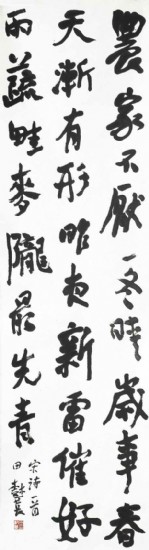 農家不厭一冬晴歲事春
天漸有形昨夜新雷催好
雨蔬畦麥隴最先青
宋詩一首
田